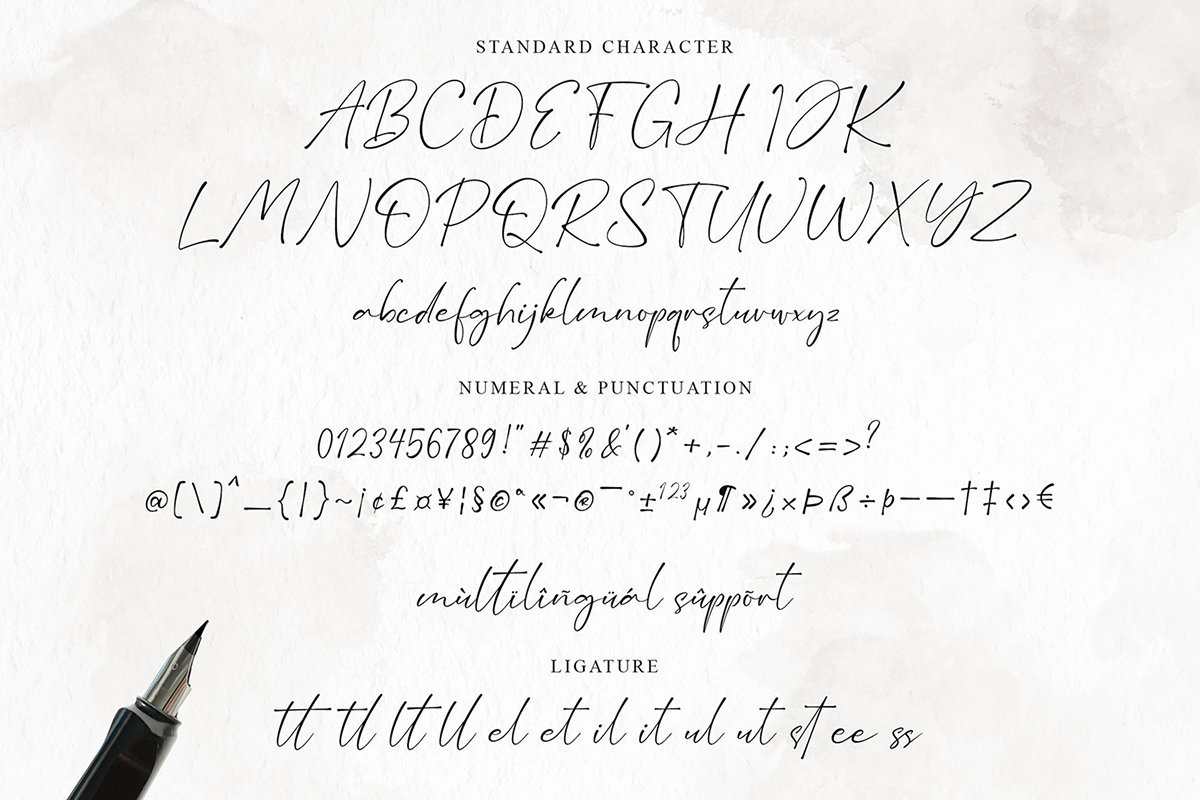 STANDARD CHARACTER
ABCDEFGHIJK
LMNOPQRSTUVWXYZ
abcdefghijklmnopqrstuvwxyz
NUMERAL & PUNCTUATION
0123456789!"#$%&'()*+,-./:;<=>?
@[\]^_{|}~¡¢£¤¥¦§©ª«¬®¯°±123µ¶»¿×Þß÷þ–—†‡‹›€
mùltïlîñgüál sûppõrt
LIGATURE
tt tl lt ll el et il it ul ut st ee ss